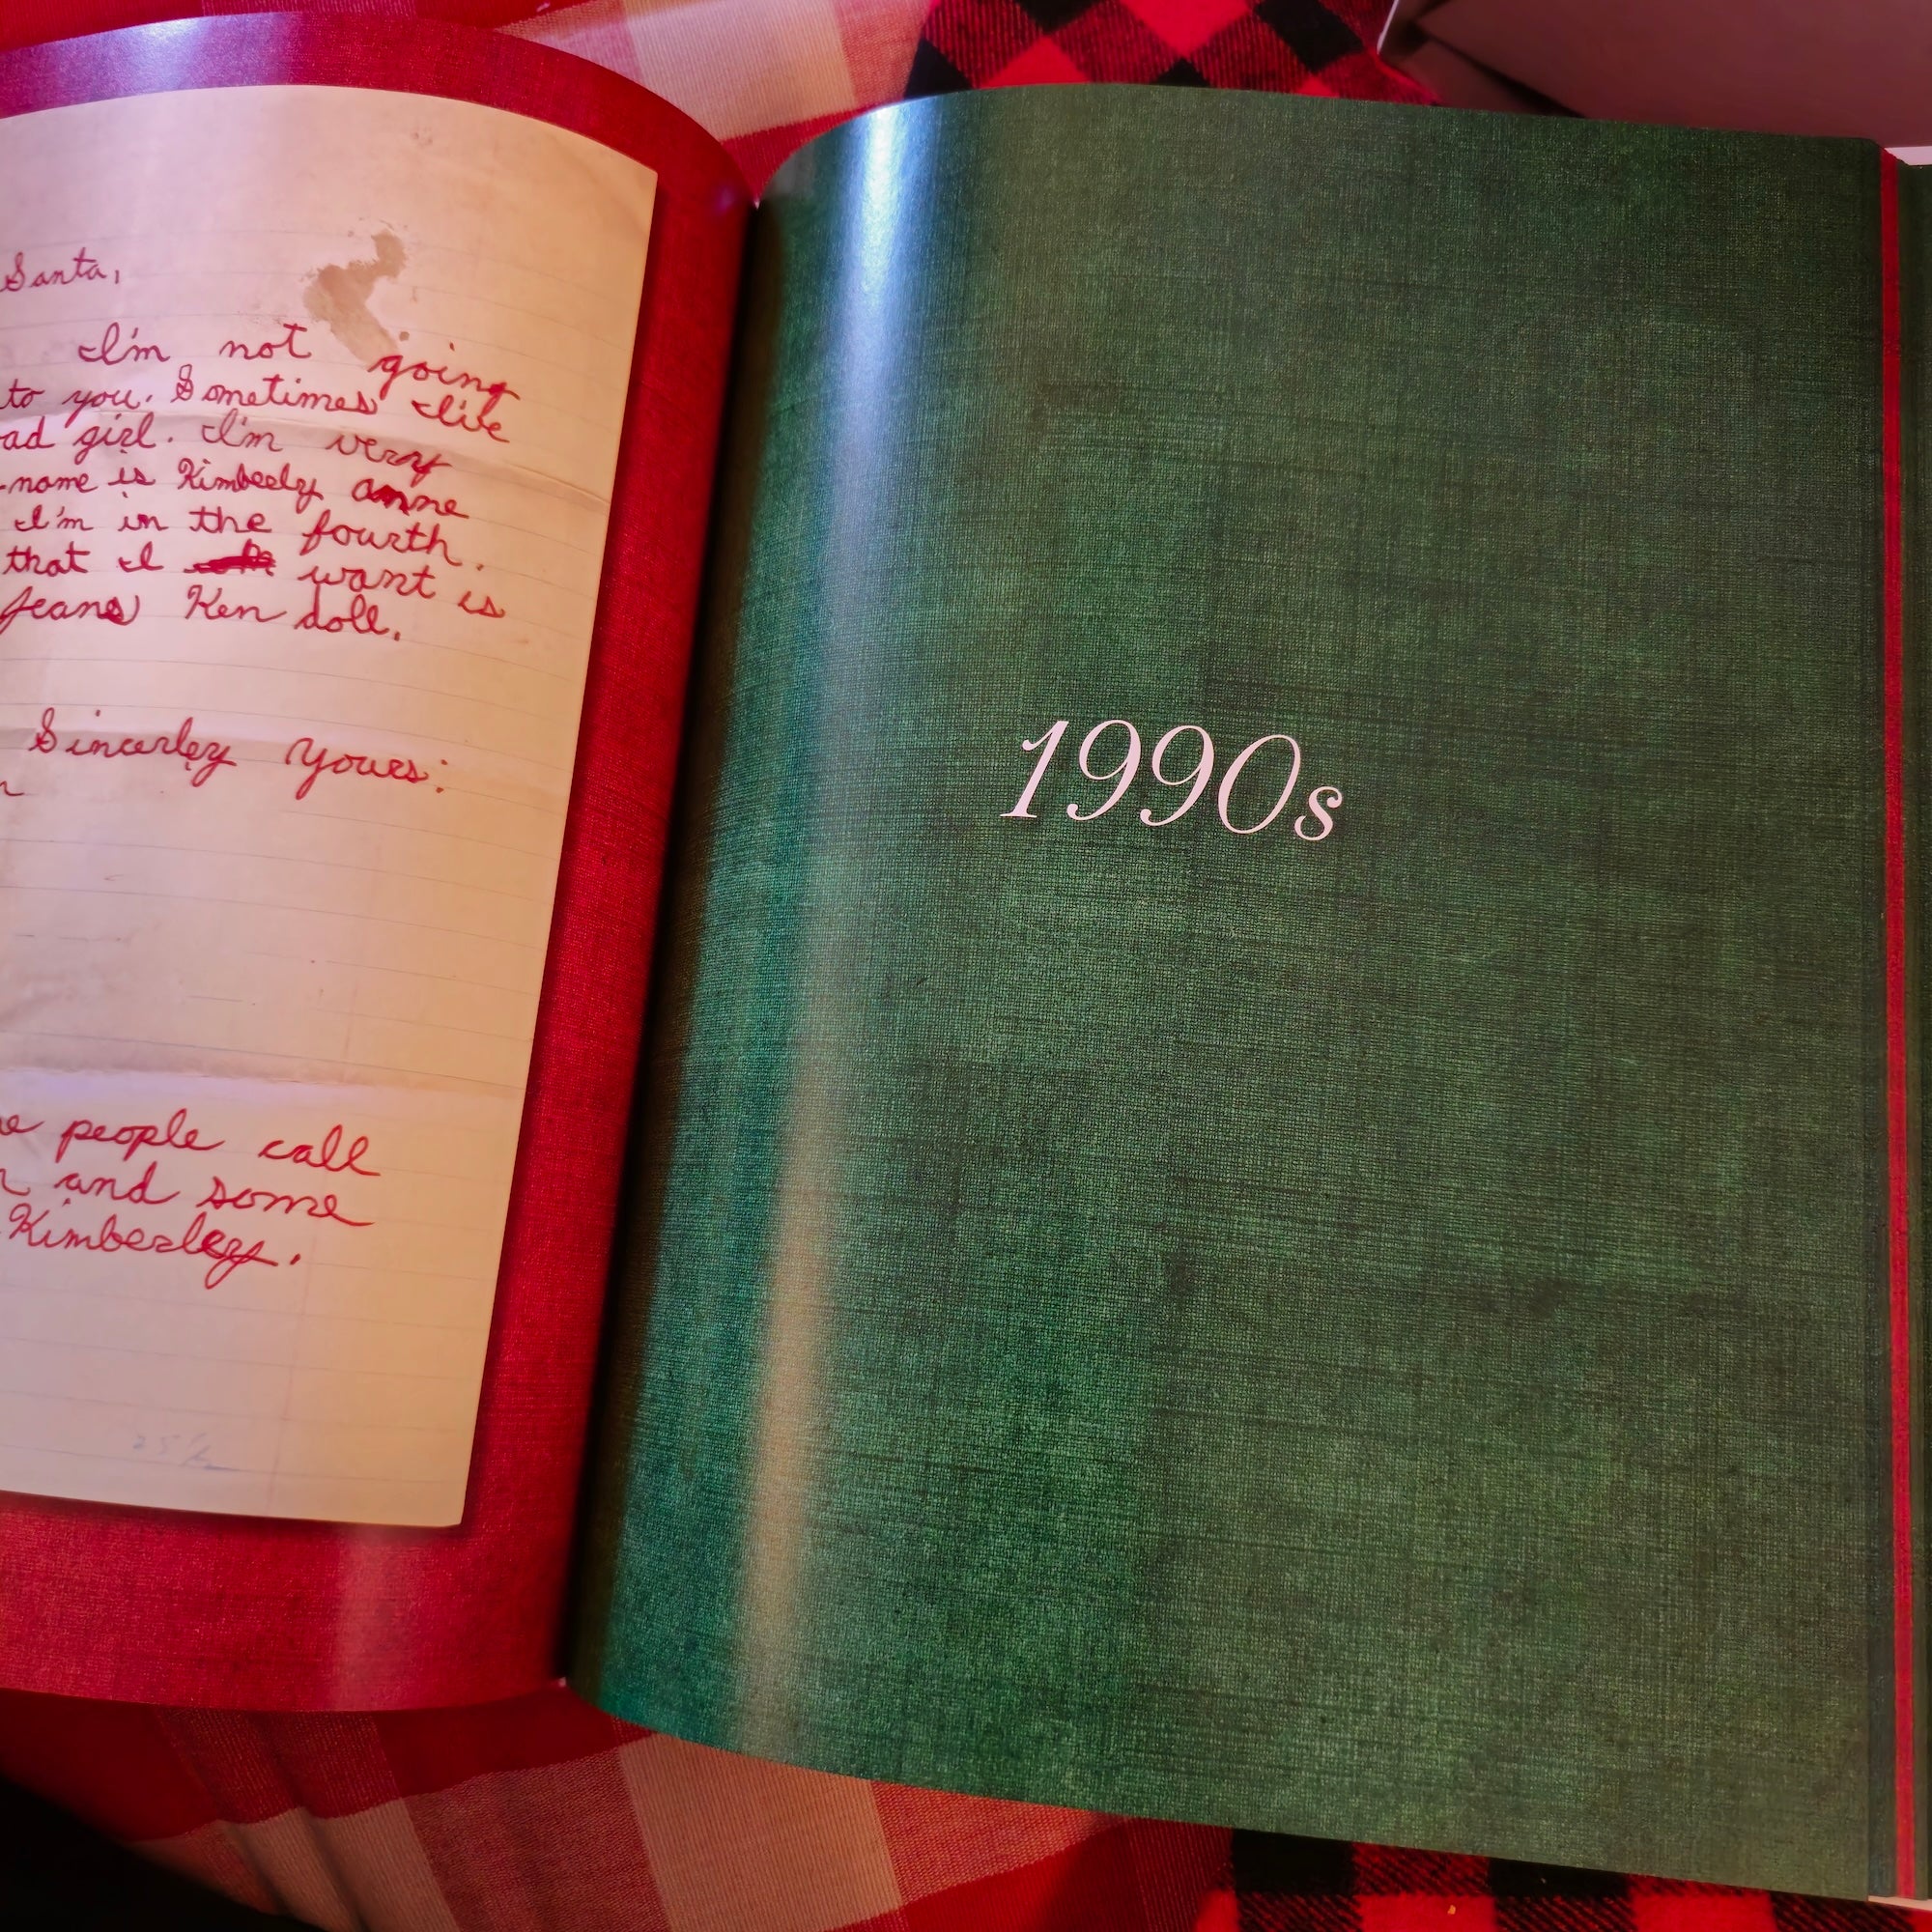 Santa,
I'm not going
to you. Sometimes I've
ad girl. I'm very
name is Kimberly anne
I'm in the fourth.
that I want is
Jeans Ken doll.
Sincerley yours:
n
e people call
n and some
Kimberley.
1990s